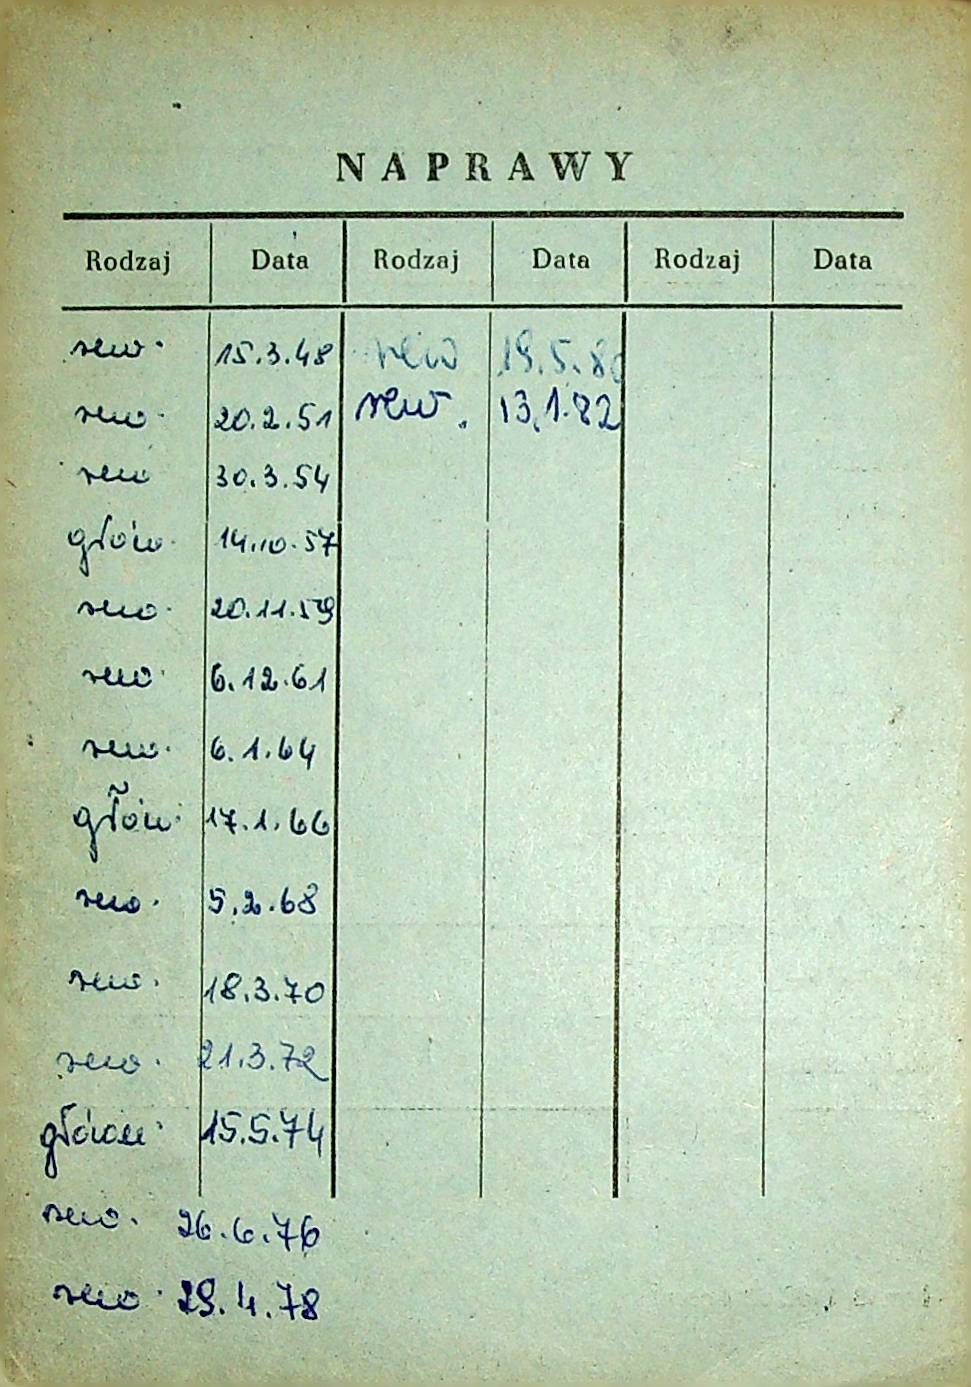 NAPRAWY
Rodzaj Data Rodzaj Data Rodzaj Data
rew. 15.3.48 rew 19.5.80
rew. 20.2.51 rew. 13.1.82
rew 30.3.54
głów. 14.10.57
rew. 20.11.59
rew. 6.12.61
rew. 6.1.64
głów. 17.1.66
rew. 5.2.68
rew. 18.3.70
rew. 21.3.72
główn. 15.5.74
rew. 26.6.76
rew. 29.4.78